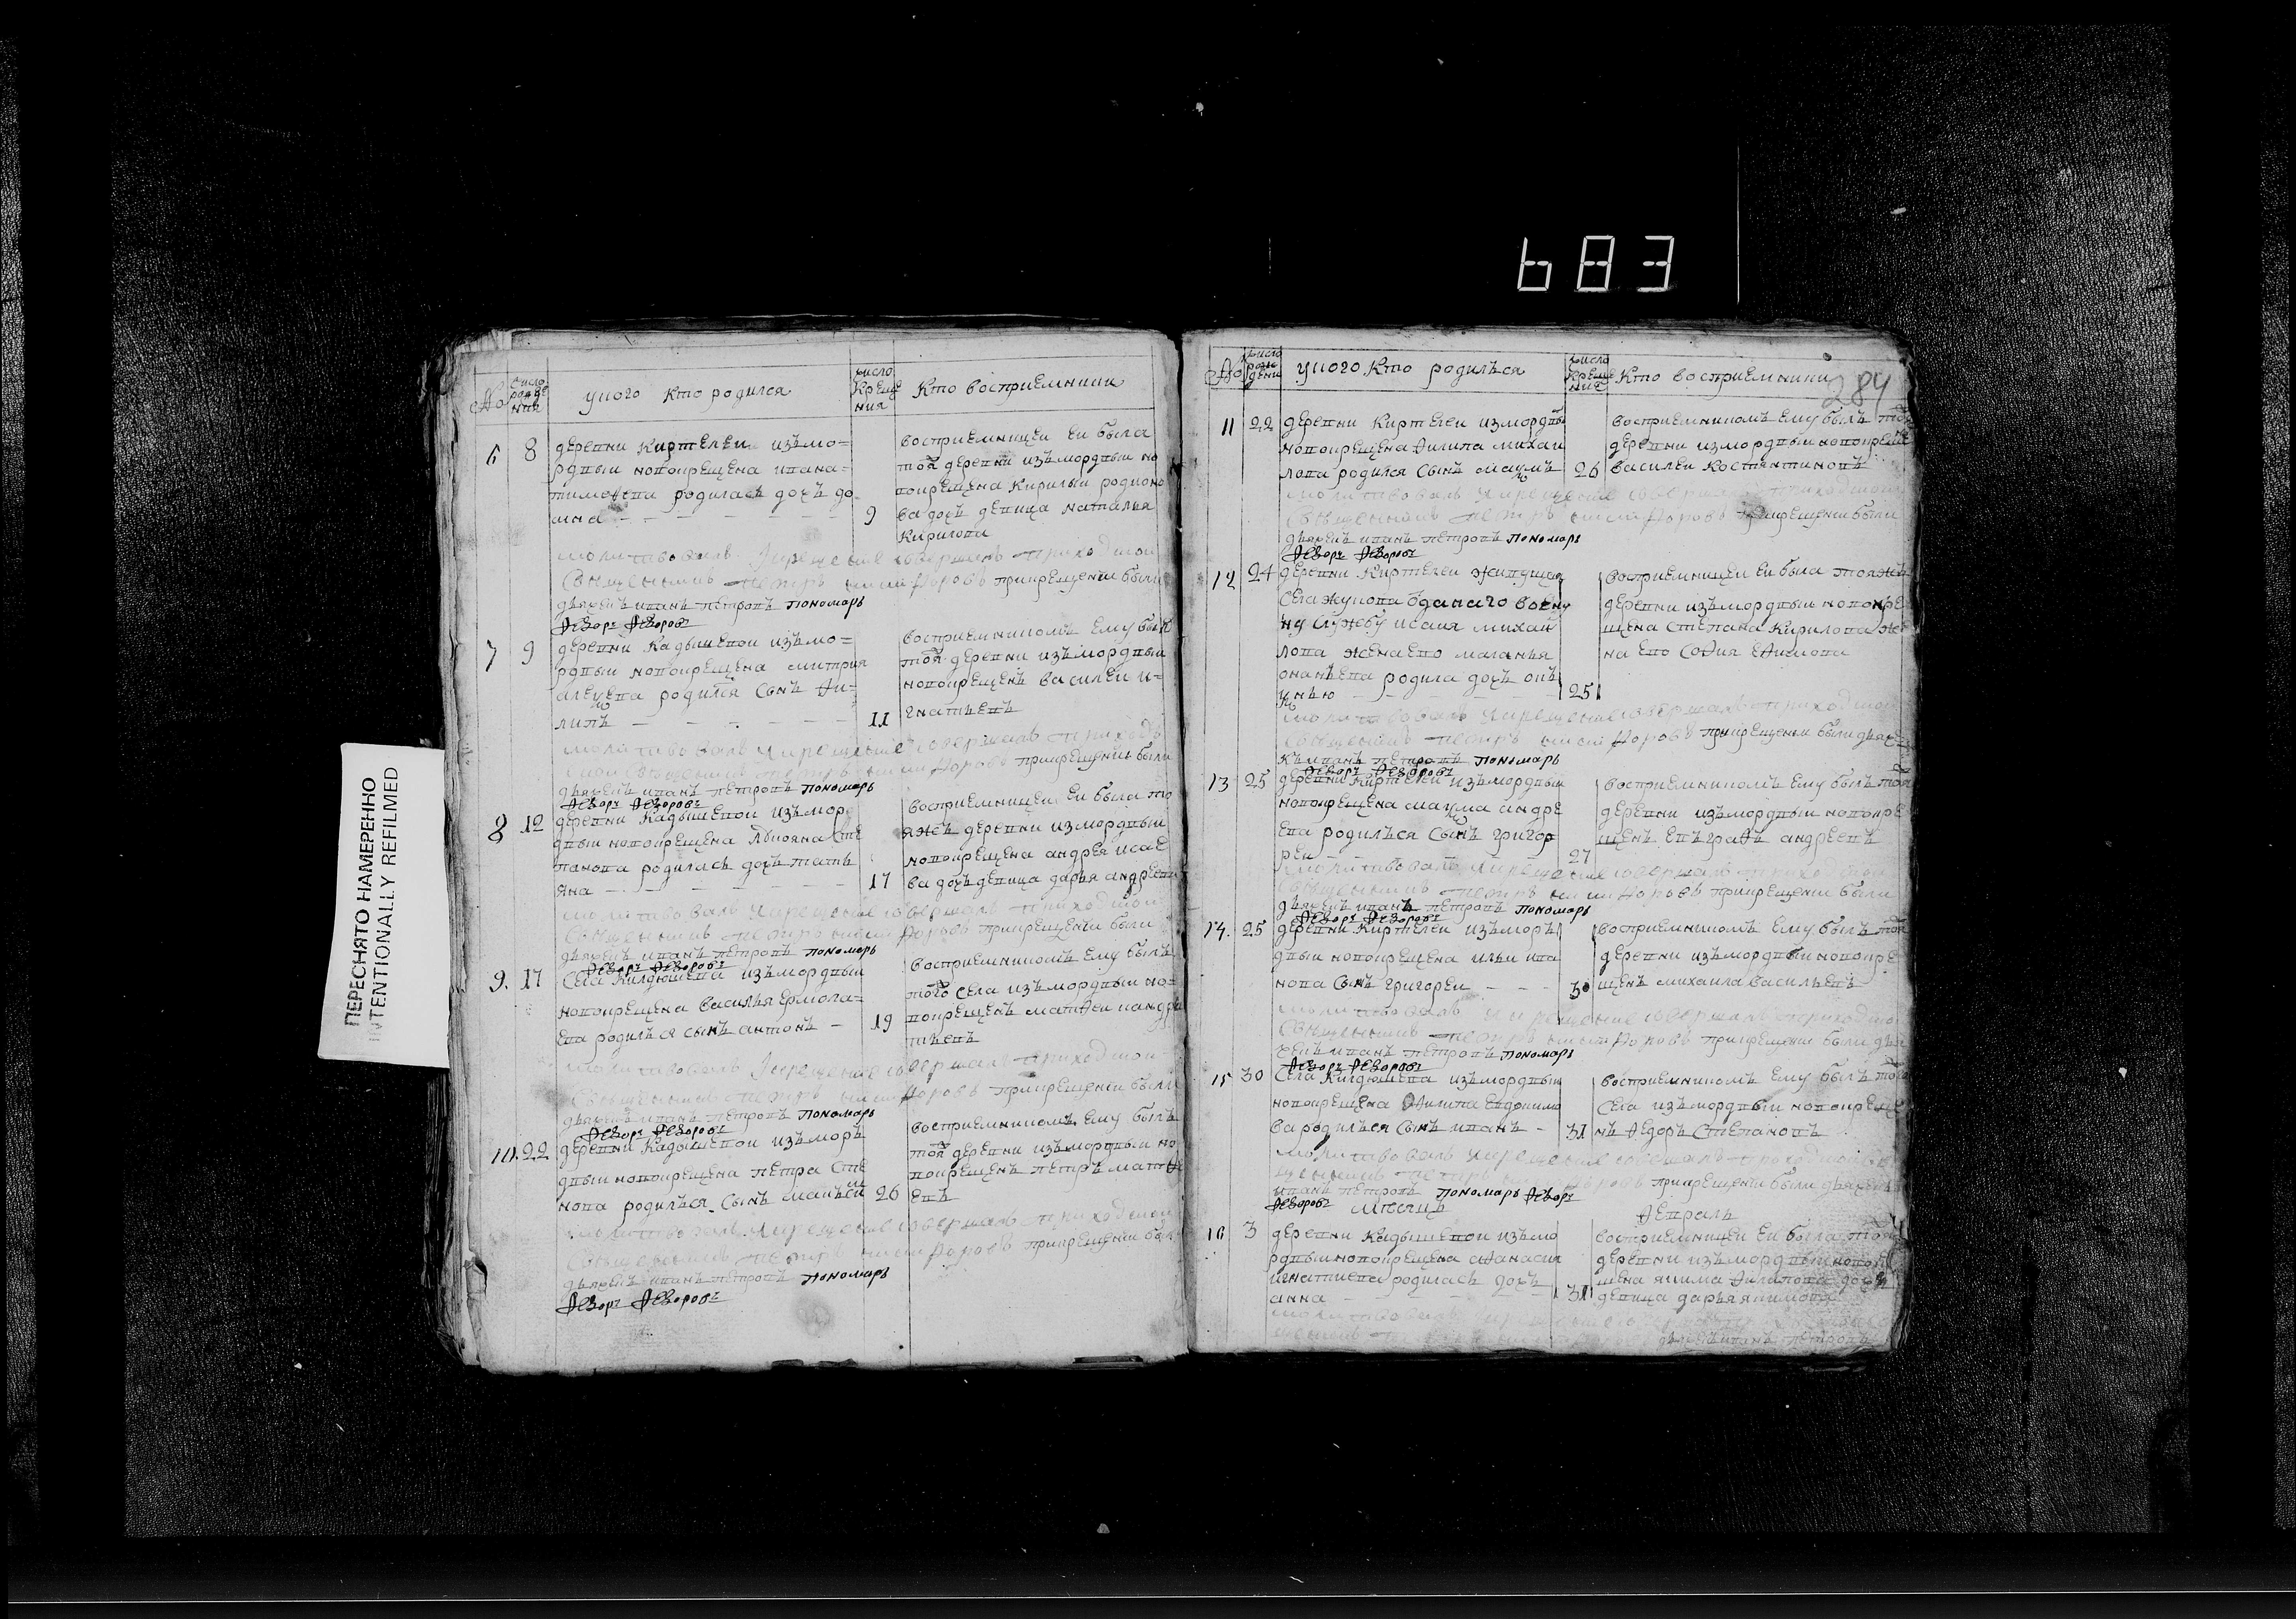 683
ПЕРЕСНЯТО НАМЕРЕННО
INTENTIONALLY REFILMED
№
число рожде ния
у кого кто родился
число Креще ния
Кто восприемники
6 8 деревни Киртелеи изъ мо=
рдвы новокрещена ивана
тимофеева родилась дочь до
мна 9
восприемницеи еи была
тоя деревни изъ мордвы но
вокрещена Кирилы родионо
ва дочь девица наталья
Кирилова
молитвовалъ и крещение совершалъ приходской
священникъ петръ при крещении были
дьячекъ иванъ петровъ пономарь
Федоръ Федоровъ
7 9 деревни Кадышевои изъ мо=
рдвы новокрещена дмитрия
алексева родился сынъ фи=
липъ 11
восприемникомъ ему былъ
тоя деревни изъ мордвы
новокрещенъ василеи и=
гнатьевъ
молитвовалъ и крещение совершалъ приход
ской священникъ петръ при крещении были
дьячекъ иванъ петровъ пономарь
Федоръ Федоровъ
8 12 деревни Кадышевои изъ мор
двы новокрещена лукояна сте
панова родилась дочь татья
яна 17
восприемницеи еи была то
яжъ деревни из мордвы
новокрещена андрея исае
ва дочь девица дарья андреева
молитвовалъ и крещение совершалъ приходской
священникъ петръ при крещении были
дьячекъ иванъ петровъ пономарь
Федоръ Федоровъ
9. 17 Села Килдюшева изъ мордвы
новокрещена василья ермола=
ева родилъся сынъ антонъ 19
восприемникомъ ему былъ
того села изъ мордвы но=
вокрещенъ матфеи
молитвовалъ и крещение совершалъ приходской
священникъ петръ при крещении были
дьячекъ иванъ петровъ пономарь
Федоръ Федоровъ
10. 22 деревни Кадышевои изъ мор
двы новокрещена петра сте
нова родилъся сынъ 26
восприемникомъ ему былъ
тоя деревни изъ мордвы но
вокрещенъ петръ матфе
евъ
молитвовалъ и крещение совершалъ приходской
священникъ петръ при крещении были
дьячекъ иванъ петровъ пономарь
Федоръ Федоровъ
284
№
число рож дения
у кого кто родилъся
число Креще ния
Кто восприемники
11 22 деревни Киртелеи из мордвы
новокрещена филипа михаи
лова родился сынъ 26
восприемникомъ ему былъ тоя
деревни из мордвы новокреще
василеи Костянтиновъ
молитвовалъ и крещение совершалъ приходской
священникъ петръ при крещении были
дьячекъ иванъ петровъ пономарь
Федоръ Федоровъ
12 24 деревни Киртелеи живущая
села жукова отданаго воену
ну службу исаия михаи
лова жена ево маланья
онаньева родила дочь 25
восприемницеи еи была тояжъ
деревни изъ мордвы новокре
щена степана Кирилова же
на ево софия ефимова
молитвовалъ и крещение совершалъ приходской
священникъ петръ при крещении были дьяче
къ иванъ петровъ пономарь
Федоръ Федоровъ
13 25 деревни Киртелеи изъ мордвы
новокрещена андре
ева родилъся сынъ григор
реи 27
восприемникомъ ему былъ тоя
деревни изъ мордвы новокре
щенъ евъграфъ андреевъ
молитвовалъ и крещение совершалъ
священникъ петръ при крещении были
дьячекъ иванъ петровъ пономарь
Федоръ Федоровъ
14. 25 деревни Киртелеи изъ мор
двы новокрещена ильи ива
нова сынъ григореи 30
восприемникомъ ему былъ тоя
деревни изъ мордвы новокре
щенъ михаила васильевъ
молитвовалъ и крещение совершалъ приходской
священникъ петръ при крещении были дья
чекъ иванъ петровъ пономарь
Федоръ Федоровъ
15 30 Села Килдюшева изъ мордвы
новокрещена филипа евдокимо
ва родилъся сынъ иванъ 31
восприемникомъ ему былъ того
села изъ мордвы новокреще
нъ федоръ степановъ
молитвовалъ и крещение совершалъ приходской
петръ при крещении были дьячекъ
иванъ петровъ пономарь Федоръ
Федоровъ
месяцъ февраль
16 3 деревни Кадышевои изъ мо
рдвы новокрещена афанасия
игнатиева родилась дочь
анна 31
восприемницеи еи была тоя
деревни изъ мордвы новокре
щена якима филипова дочь
девица дарья якимова
дьячекъ иванъ петровъ